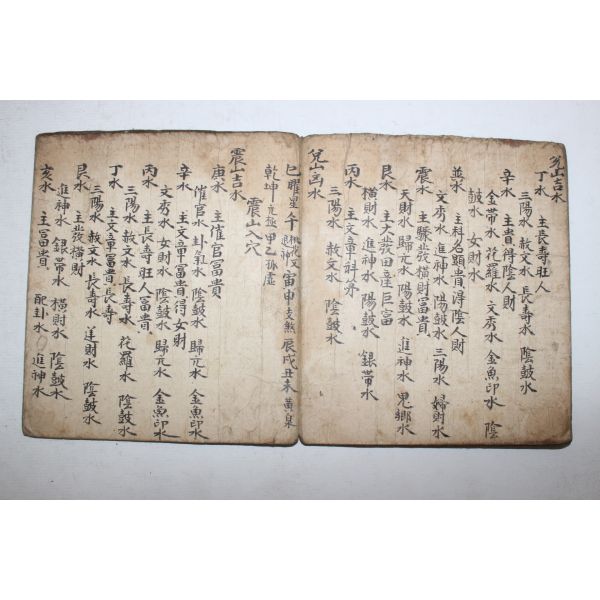 兌山吉水
丁水 主長壽旺人
三陽水 赦文水 長壽水 陰鼓水
辛水 主貴得陰人財
金帶水 花羅水 文秀水 金魚印水 陰
鼓水 女財水
主科名顯貴得陰人財
文秀水 進神水 陽鼓水 三陽水 婦財水
震水 主驟發橫財冨貴
天財水 歸元水 陽鼓水 進神水 鬼鄉水
艮水 主大發田庄巨富
橫財水 進神水 陽鼓水 銀帶水
丙水 主文章科第
三陽水 赦文水 陰鼓水
兌山凶水
巳曜星 午 寅申 支煞 辰戌丑未 黃泉
乾坤 甲乙孤虛
震山入穴
震山吉水
庚水 主催官冨貴
催官水 卦氣水 陰鼓水 歸元水 金魚印水
辛水 主文章冨貴得女財
文秀水 女財水 陰鼓水 歸元水 金魚印水
丙水 主長壽旺人冨貴
三陽水 赦文水 長壽水 花羅水 陰鼓水
丁水 主文章冨貴長壽
三陽水 赦文水 長壽水 陰鼓水
艮水 主發橫財
進神水 銀帶水 橫財水 陰鼓水
亥水 主冨貴 配卦水 進神水